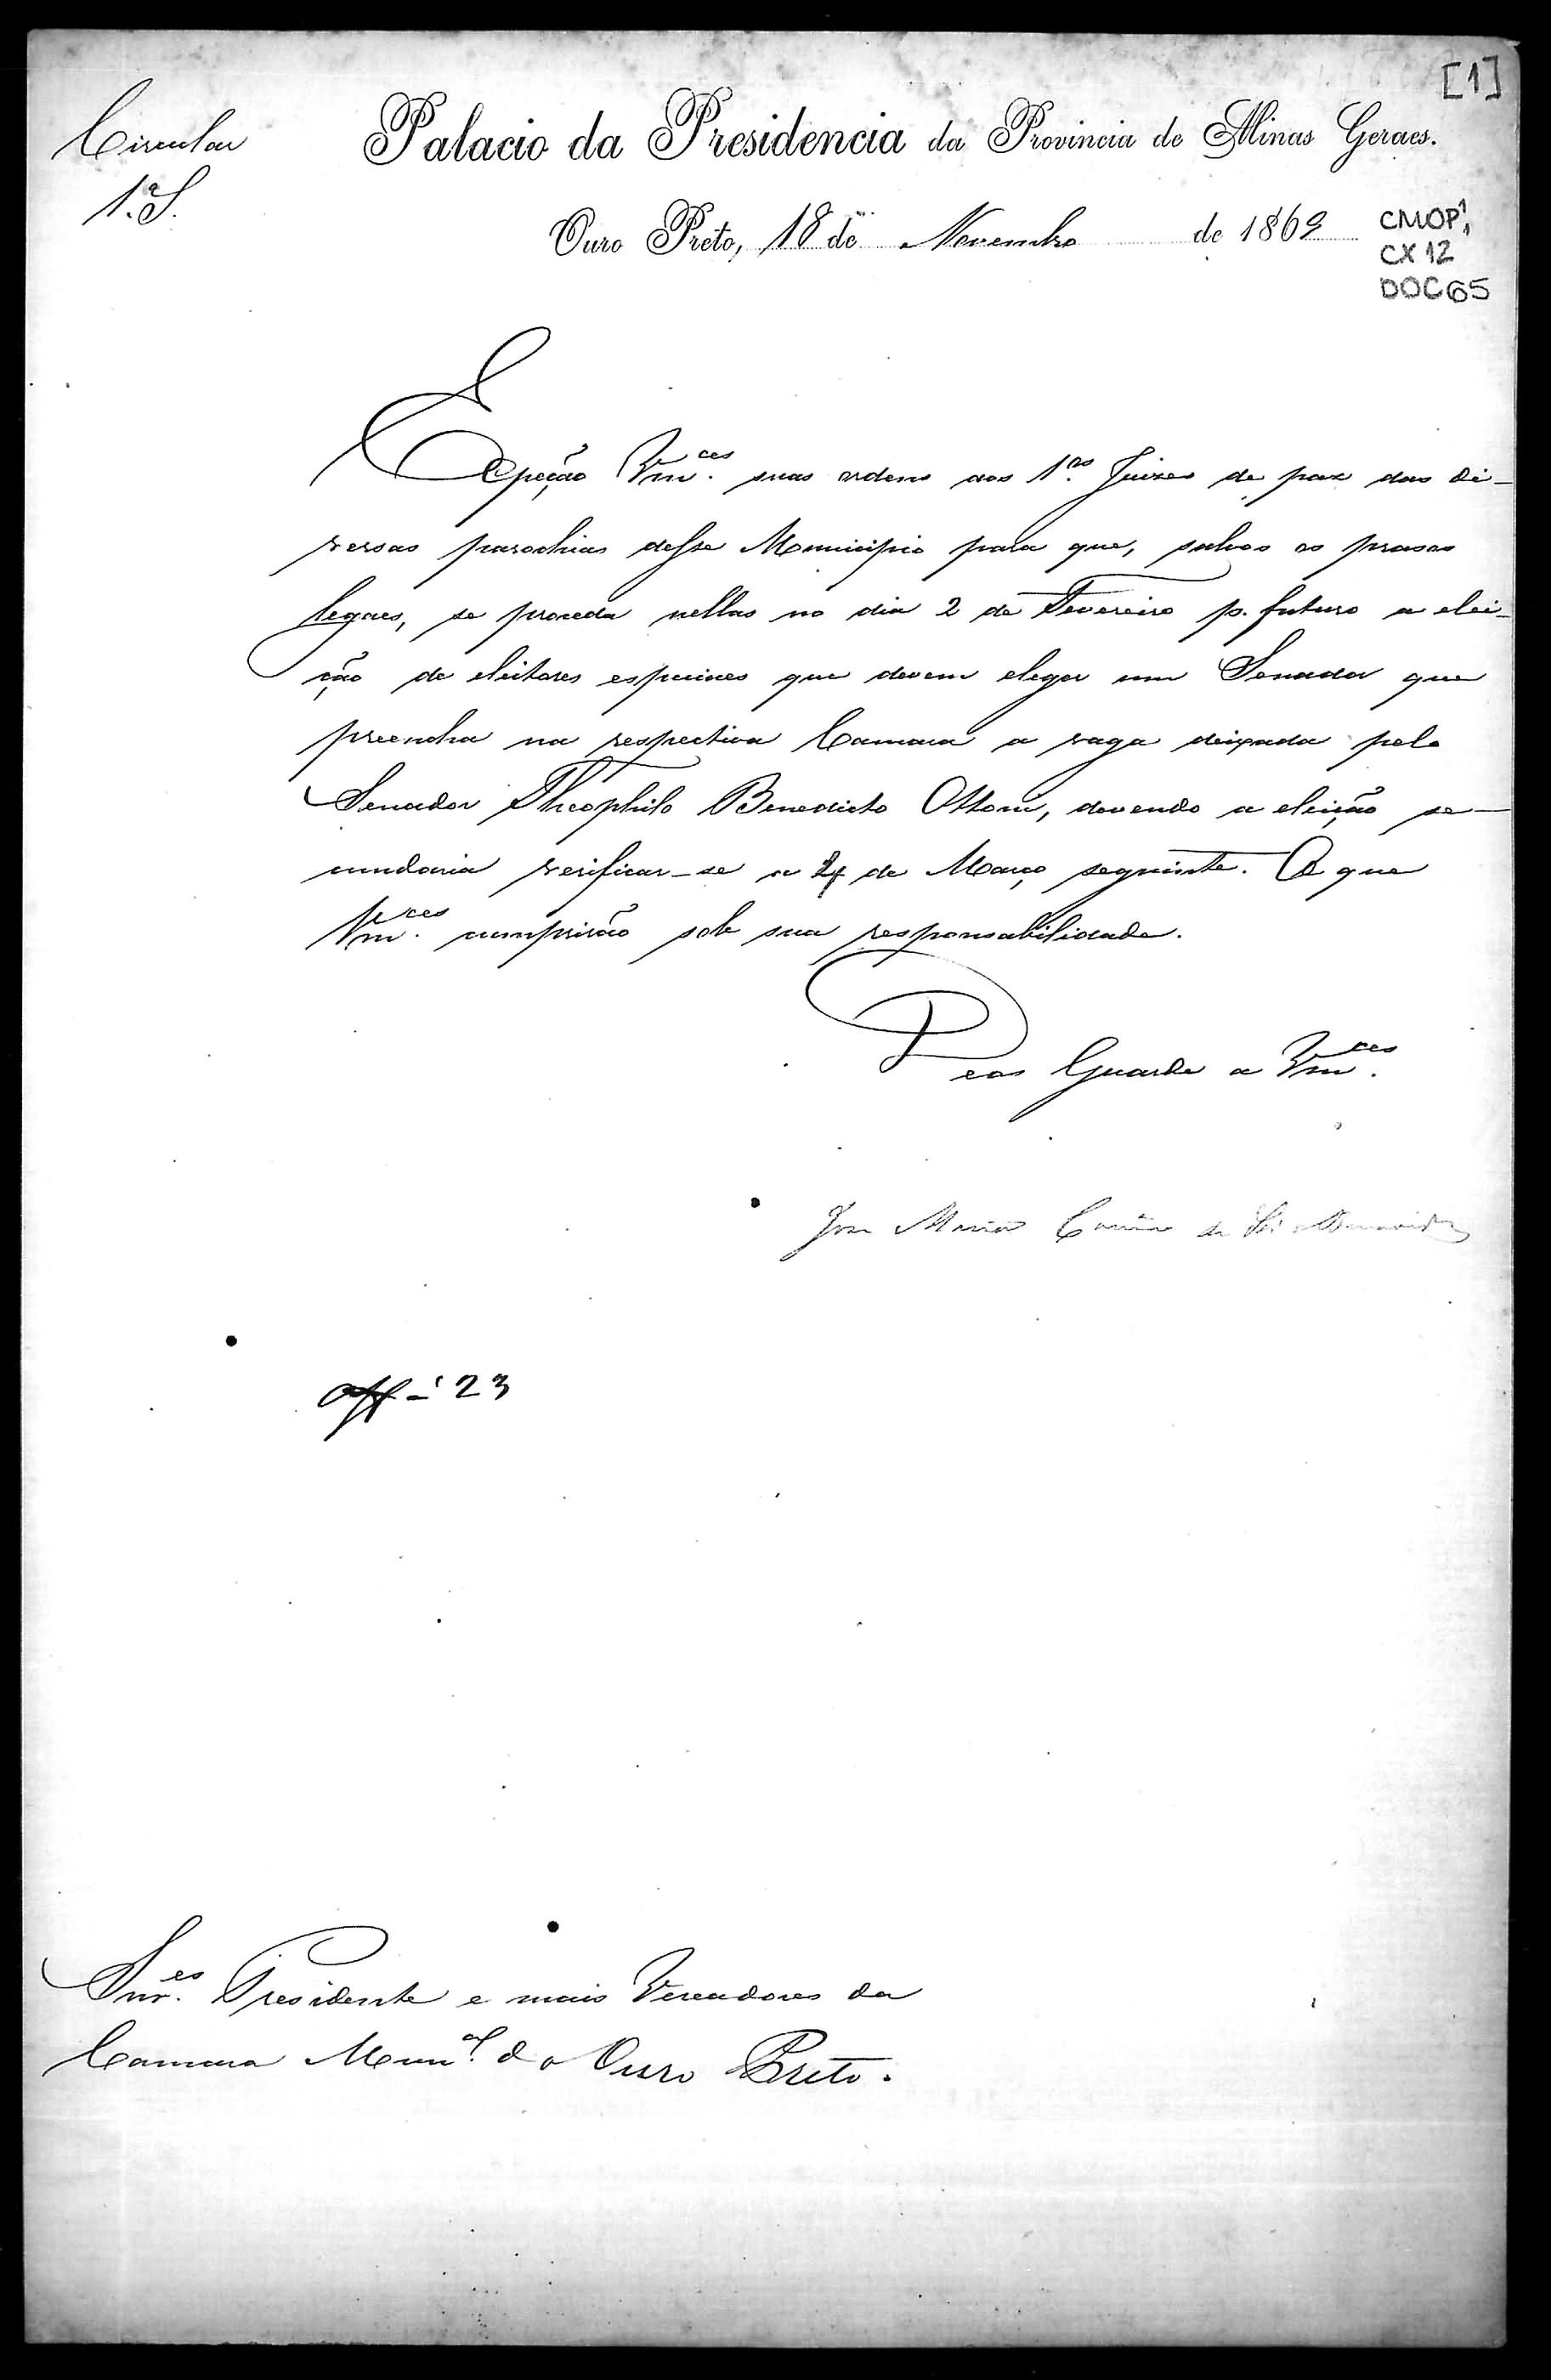 [1]
Circular
1.ª S.
Palacio da Presidencia da Provincia de Minas Geraes.
Ouro Preto, 18 de Novembro de 1869
CMOP1,
CX 12
DOC 65
Expeção Vm.ces suas ordens aos 1.os Juizes de paz das di-
versas parochias desse Municipio para que, salvos os prasos
legaes, se proceda nellas no dia 2 de Fevereiro p. futuro a elei-
ção de eleitores especiaes que devem eleger um Senador que
preencha na respectiva Camara a vaga deixada pelo
Senador Theophilo Benedicto Ottoni, devendo a eleição se-
cundaria verificar-se a de Março seguinte. O que
Vm.ces cumprirão sob sua responsabilidade.
Deos Guarde a Vm.ces
José Maria Corrêa de Sá e Benevides
Off - 23
Snr.es Presidente e mais Vereadores da
Camara Mun.al do Ouro Preto.